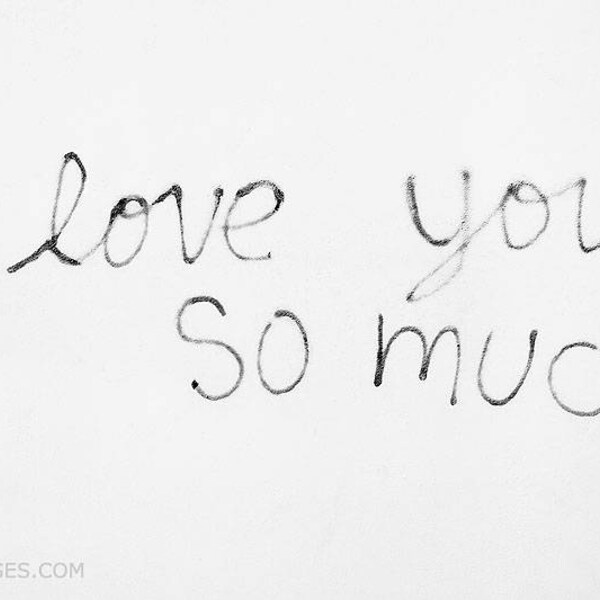 love you
so muc
GES.COM